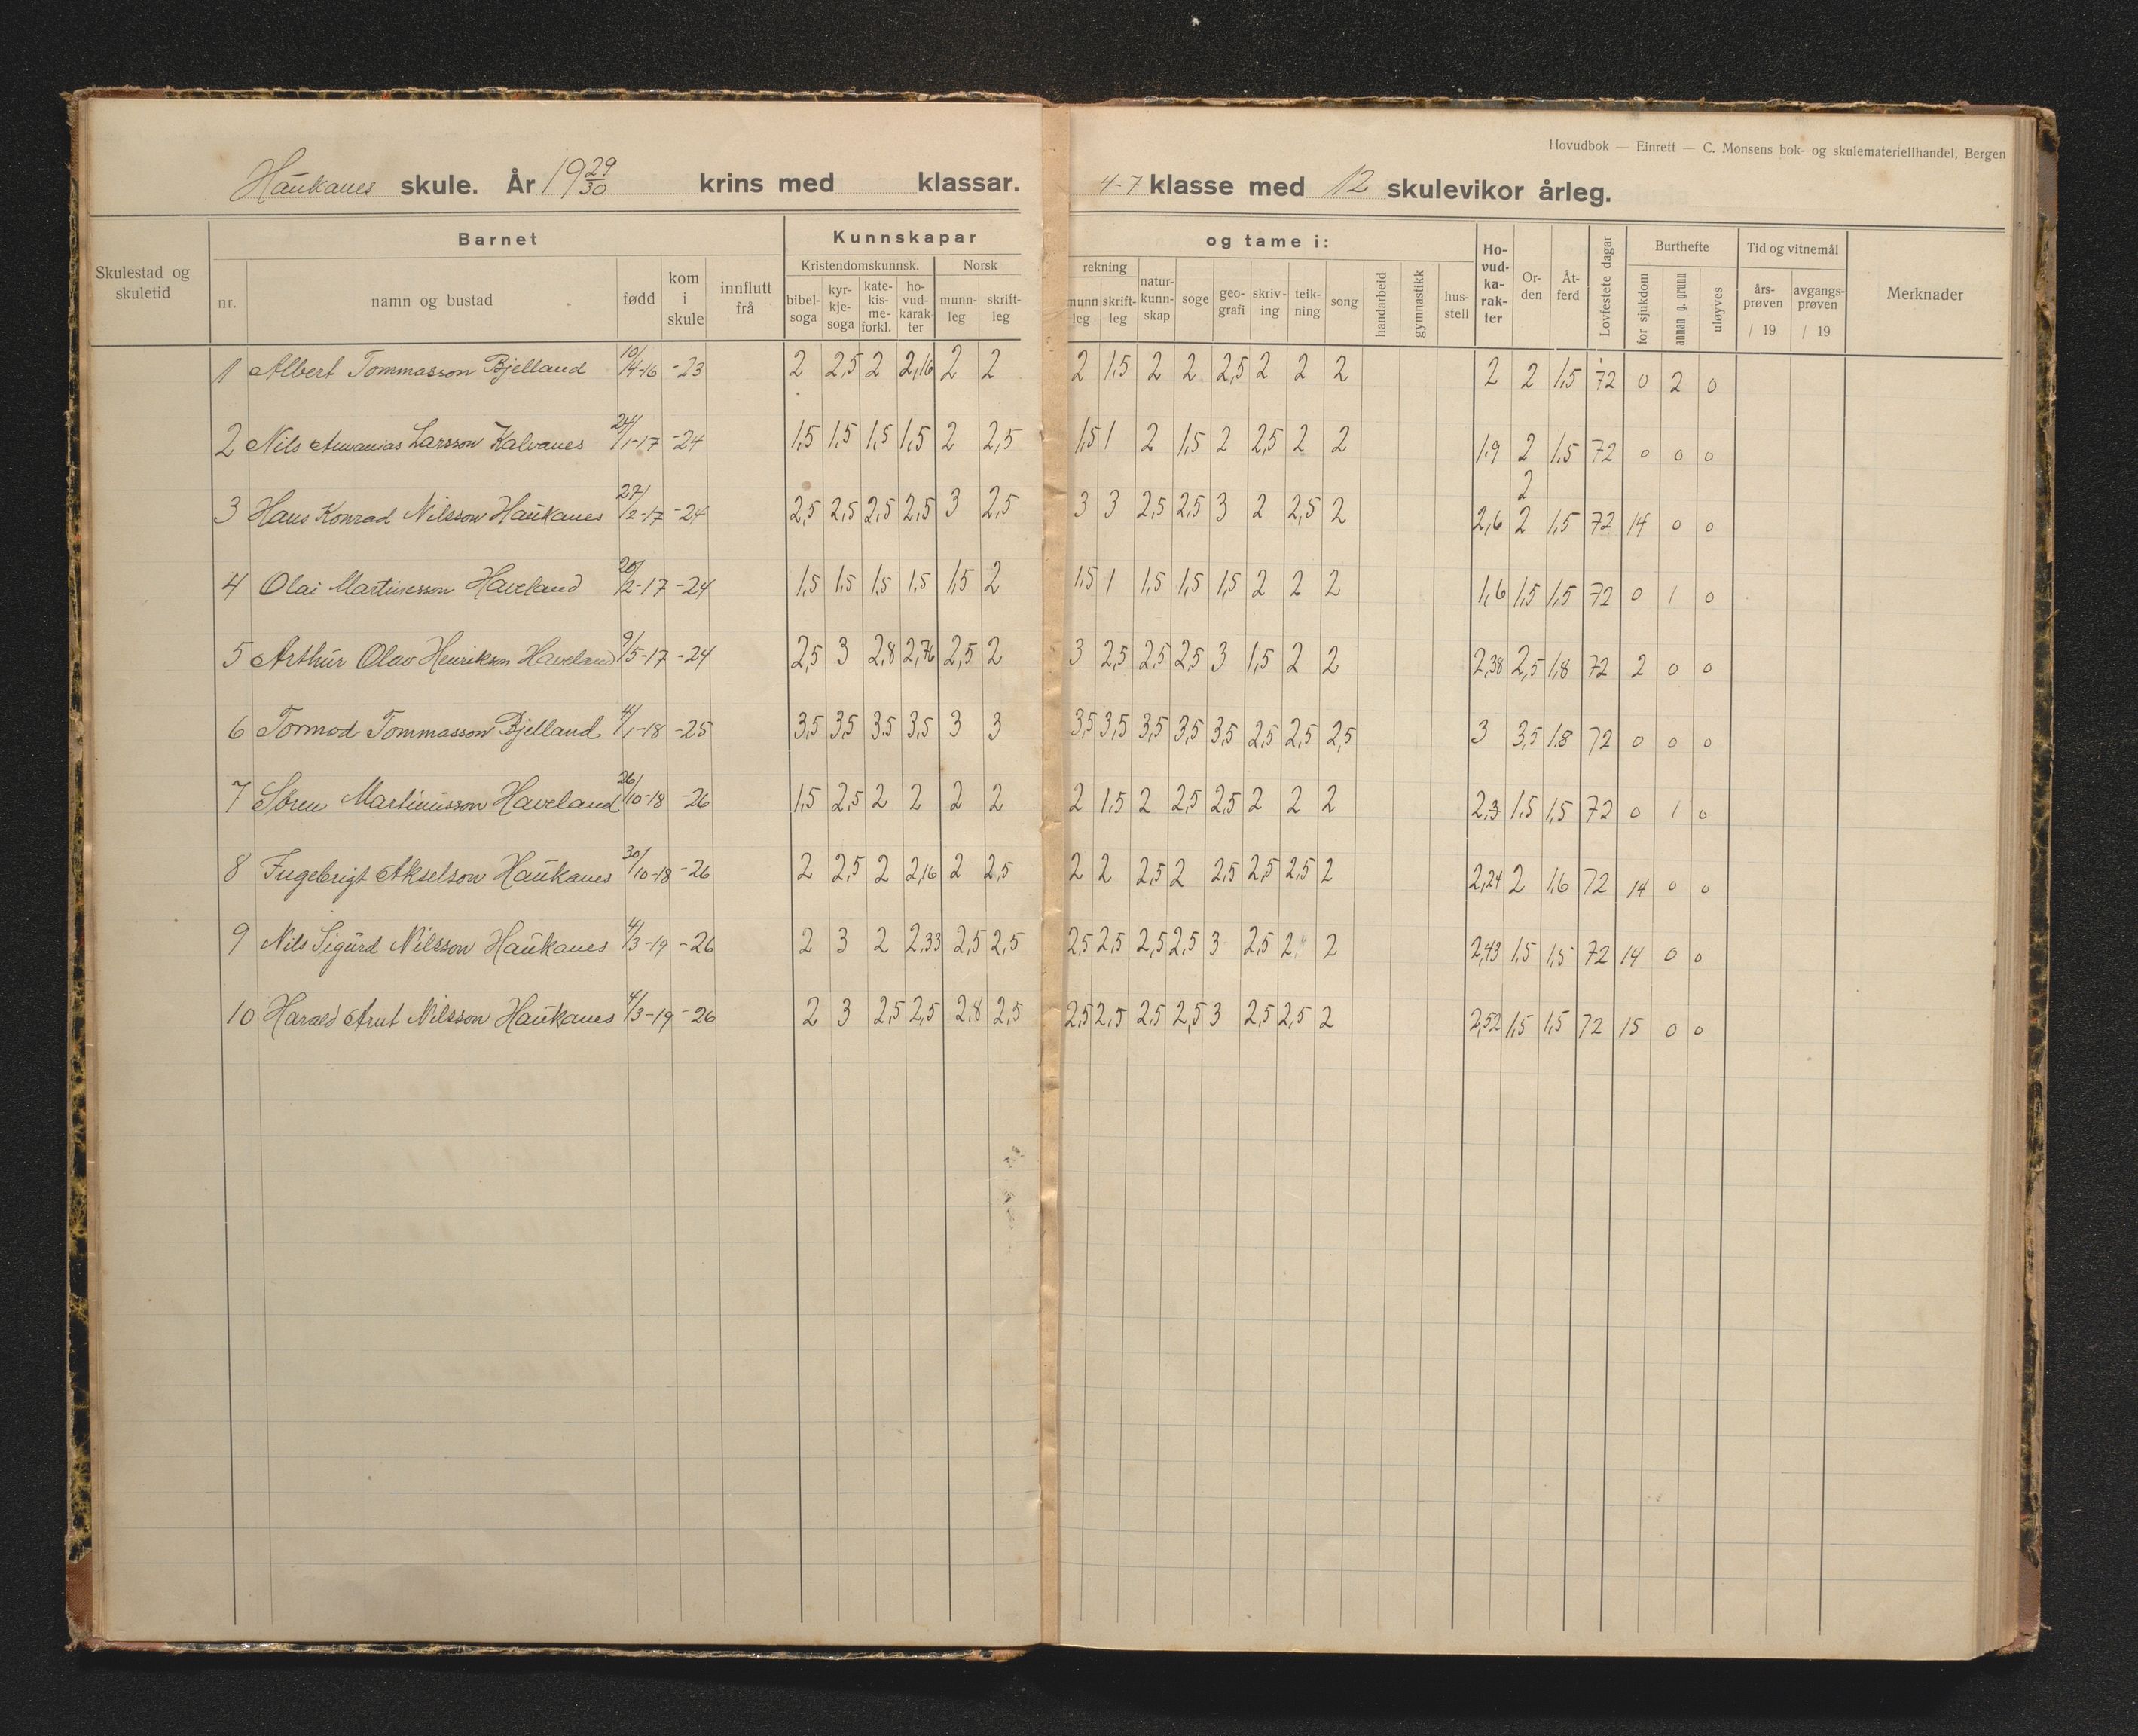 Hovudbok — Einrett — C. Monsens bok- og skulemateriellhandel, Bergen
Haukanes skule. År 1929/30 krins med klassar. 4-7 klasse med 12 skulevikor årleg.
Skulestad og skuletid
Barnet
nr. namn og bustad fødd kom i skule innflutt frå
Kunnskapar og tame i:
Kristendomskunnsk. bibel-soga kyr-kje-soga kate-kis-me-forkl. ho-vud-karak-ter
Norsk munn-leg skrift-leg
rekning munn-leg skrift-leg natur-kunn-skap soge geo-grafi skriv-ing teik-ning song handarbeid gymnastikk hus-stell
Ho-vud-ka-rak-ter Or-den Åt-ferd Lovfestete dagar
Burthefte for sjukdom annan g. grunn uløyves
Tid og vitnemål års-prøven / 19 avgangs-prøven / 19
Merknader
1 Albert Tommasson Bjelland 19/4-16 -23 2 2,5 2 2,16 2 2 2 1,5 2 2 2,5 2 2 2 2 2 1,5 72 0 2 0
2 Nils Larsson Kalvanes 24/1-17 -24 1,5 1,5 1,5 1,5 2 2,5 1,5 1 2 1,5 2 2,5 2 2 1,9 2 1,5 72 0 0 0
2
3 Hans Konrad Nilsson Haukanes 27/2-17 -24 2,5 2,5 2,5 2,5 3 2,5 3 3 2,5 2,5 3 2 2,5 2 2,6 2 1,5 72 14 0 0
4 Olai Martinusson Haveland 20/2-17 -24 1,5 1,5 1,5 1,5 1,5 2 1,5 1 1,5 1,5 1,5 2 2 2 1,6 1,5 1,5 72 0 1 0
5 Arthur Olav Henrikson Haveland 9/5-17 -24 2,5 3 2,8 2,76 2,5 2 3 2,5 2,5 2,5 3 1,5 2 2 2,38 2,5 1,8 72 2 0 0
6 Tormod Tommasson Bjelland 4/1-18 -25 3,5 3,5 3,5 3,5 3 3 3,5 3,5 3,5 3,5 3,5 2,5 2,5 2,5 3 3,5 1,8 72 0 0 0
7 Søren Martinusson Haveland 26/10-18 -26 1,5 2,5 2 2 2 2 2 1,5 2 2,5 2,5 2 2 2 2,3 1,5 1,5 72 0 1 0
8 Ingebrigt Akselson Haukanes 30/10-18 -26 2 2,5 2 2,16 2 2,5 2 2 2,5 2 2,5 2,5 2,5 2 2,24 2 1,6 72 14 0 0
9 Nils Sigurd Nilsson Haukanes 4/3-19 -26 2 3 2 2,33 2,5 2,5 2,5 2,5 2,5 2,5 3 2,5 2 2 2,43 1,5 1,5 72 14 0 0
10 Harald Arnt Nilsson Haukanes 4/3-19 -26 2 3 2,5 2,5 2,8 2,5 2,5 2,5 2,5 2,5 3 2,5 2,5 2 2,52 1,5 1,5 72 15 0 0